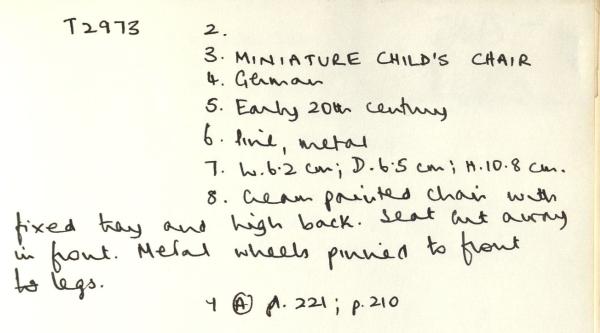 T2973 2.
3. MINIATURE CHILD'S CHAIR
4. German
5. Early 20th century
6. Pine, metal
7. W. 6.2 cm; D. 6.5 cm; H. 10.8 cm.
8. Cream painted chair with
fixed tray and high back. Seat cut away
in front. Metal wheels pinned to front
legs.
A 221; p. 210